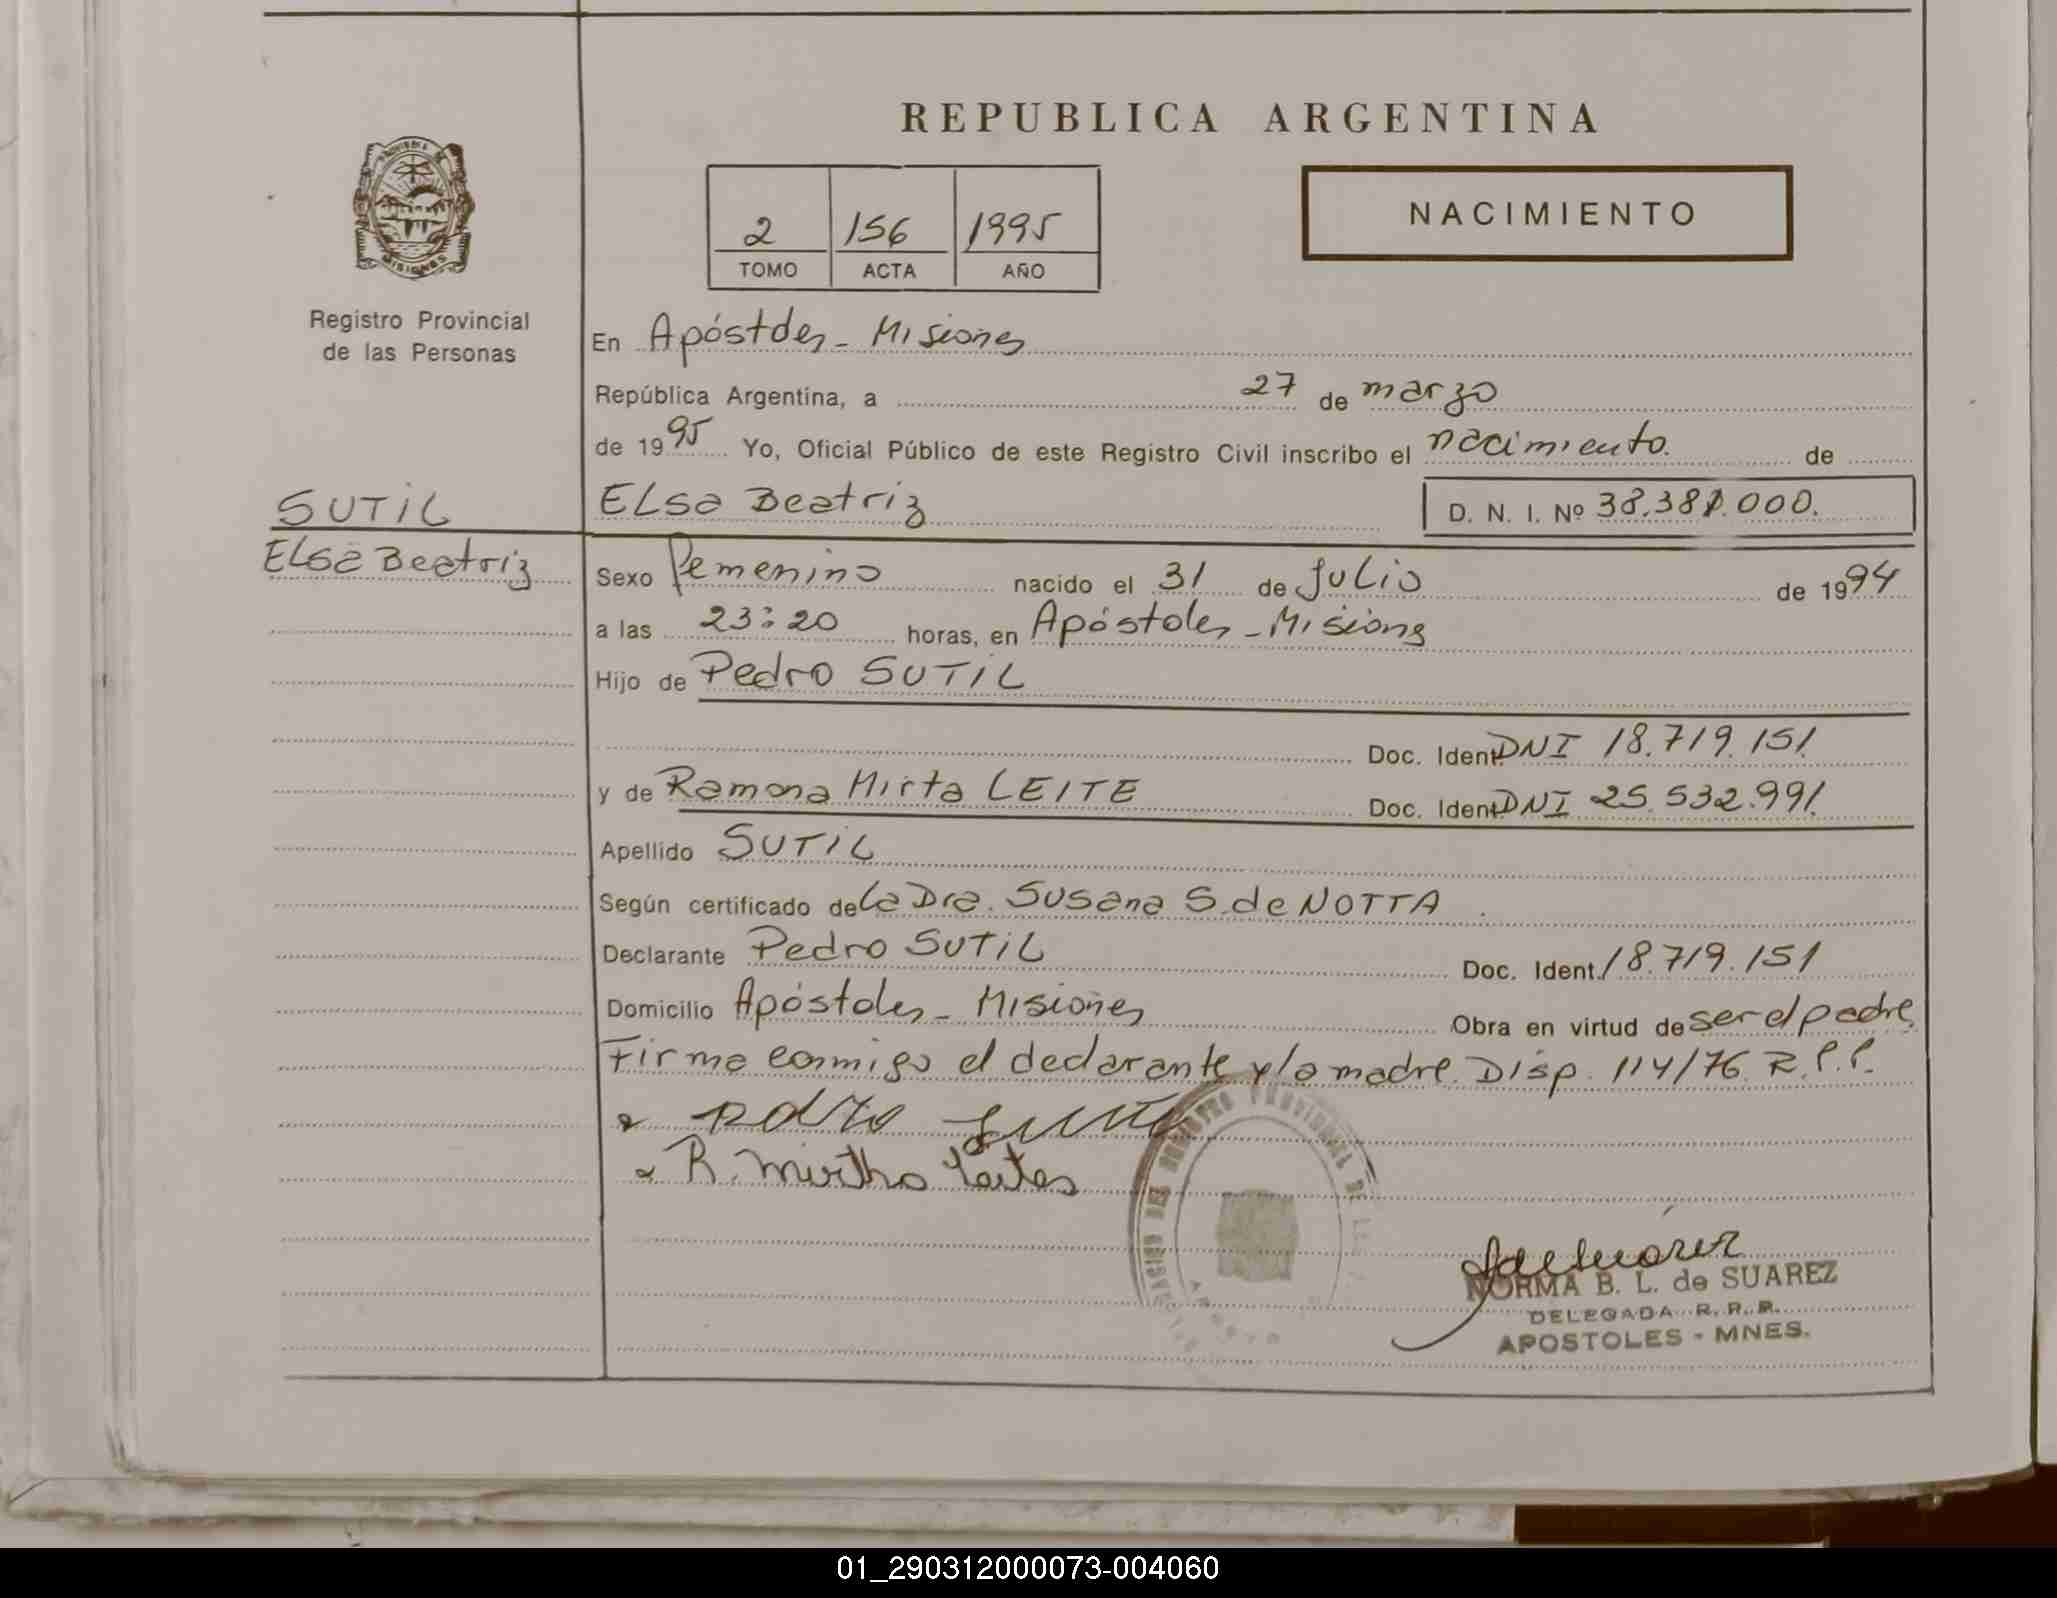 REPUBLICA ARGENTINA
NACIMIENTO
2 156 1995
TOMO ACTA AÑO
PROVINCIA DE
MISIONES
Registro Provincial
de las Personas
En Apóstoles - Misiones
República Argentina, a 27 de marzo
de 1995 Yo, Oficial Público de este Registro Civil inscribo el nacimiento. de
SUTIL
Elsa Beatriz
ELsa Beatriz D. N. I. Nº 38.381.000.
Sexo Femenino nacido el 31 de Julio de 1994
a las 23:20 horas, en Apóstoles - Misiones
Hijo de Pedro SUTIL
Doc. Ident. DNI 18.719.151
y de Ramona Mirta LEITE Doc. Ident. DNI 25.532.991
Apellido SUTIL
Según certificado de La Dra. Susana S. de NOTTA
Declarante Pedro SUTIL Doc. Ident. 18.719.151
Domicilio Apóstoles - Misiones Obra en virtud de ser el padre
Firma conmigo el declarante y la madre. Disp. 114/76 R.P.P.
R. Mirtha Leites
REGISTRO PROVINCIAL DE
NORMA B. L. de SUAREZ
DELEGADA R. P. P.
APOSTOLES - MNES.
01_290312000073-004060